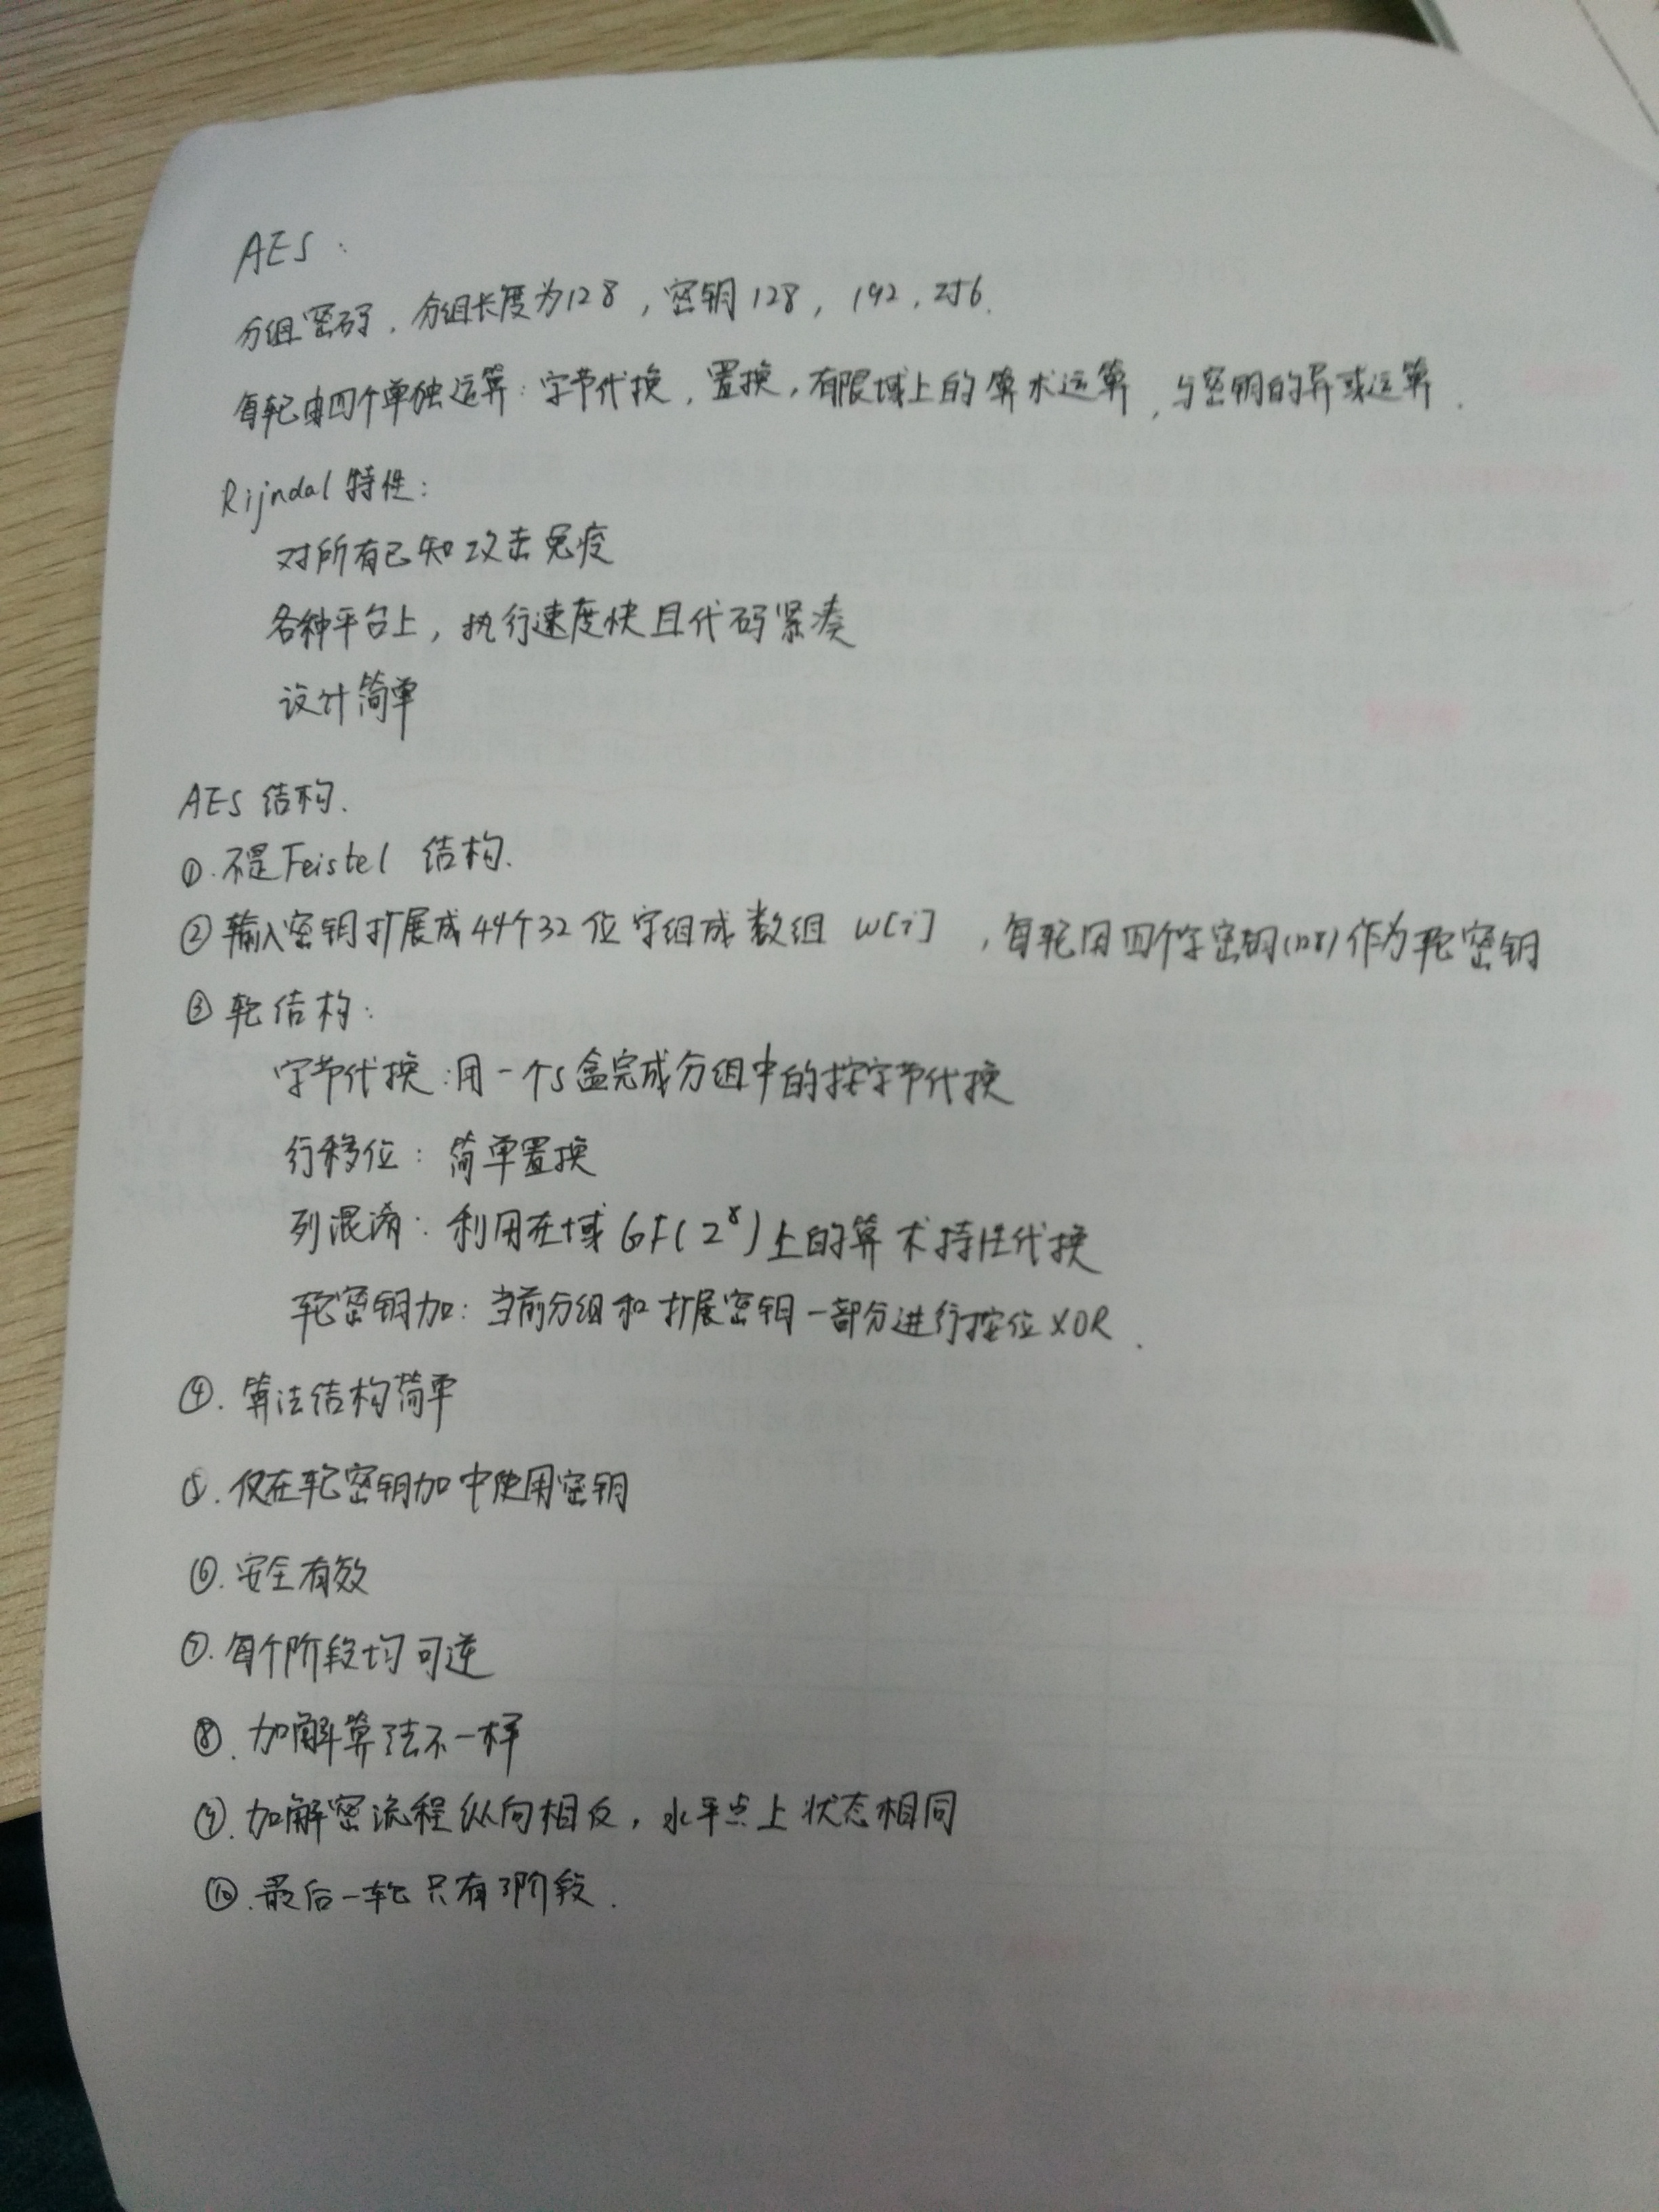 AES:
分组密码,分组长度为128,密钥128,192,256.
每轮由四个单独运算:字节代换,置换,有限域上的算术运算,与密钥的异或运算.
Rijndal特性:
对所有已知攻击免疫
各种平台上,执行速度快且代码紧凑
设计简单
AES结构.
①.不是Feistel 结构.
②输入密钥扩展成44个32位字组成数组 w[i] ,每轮用四个字密钥(128)作为轮密钥
③轮结构:
字节代换:用一个S盒完成分组中的按字节代换
行移位:简单置换
列混淆:利用在域GF(2⁸)上的算术特性代换
轮密钥加:当前分组和扩展密钥一部分进行按位XOR.
④.算法结构简单
⑤.仅在轮密钥加中使用密钥
⑥.安全有效
⑦.每个阶段均可逆
⑧.加解算法不一样
⑨.加解密流程纵向相反,水平点上状态相同
⑩.最后一轮只有3阶段.